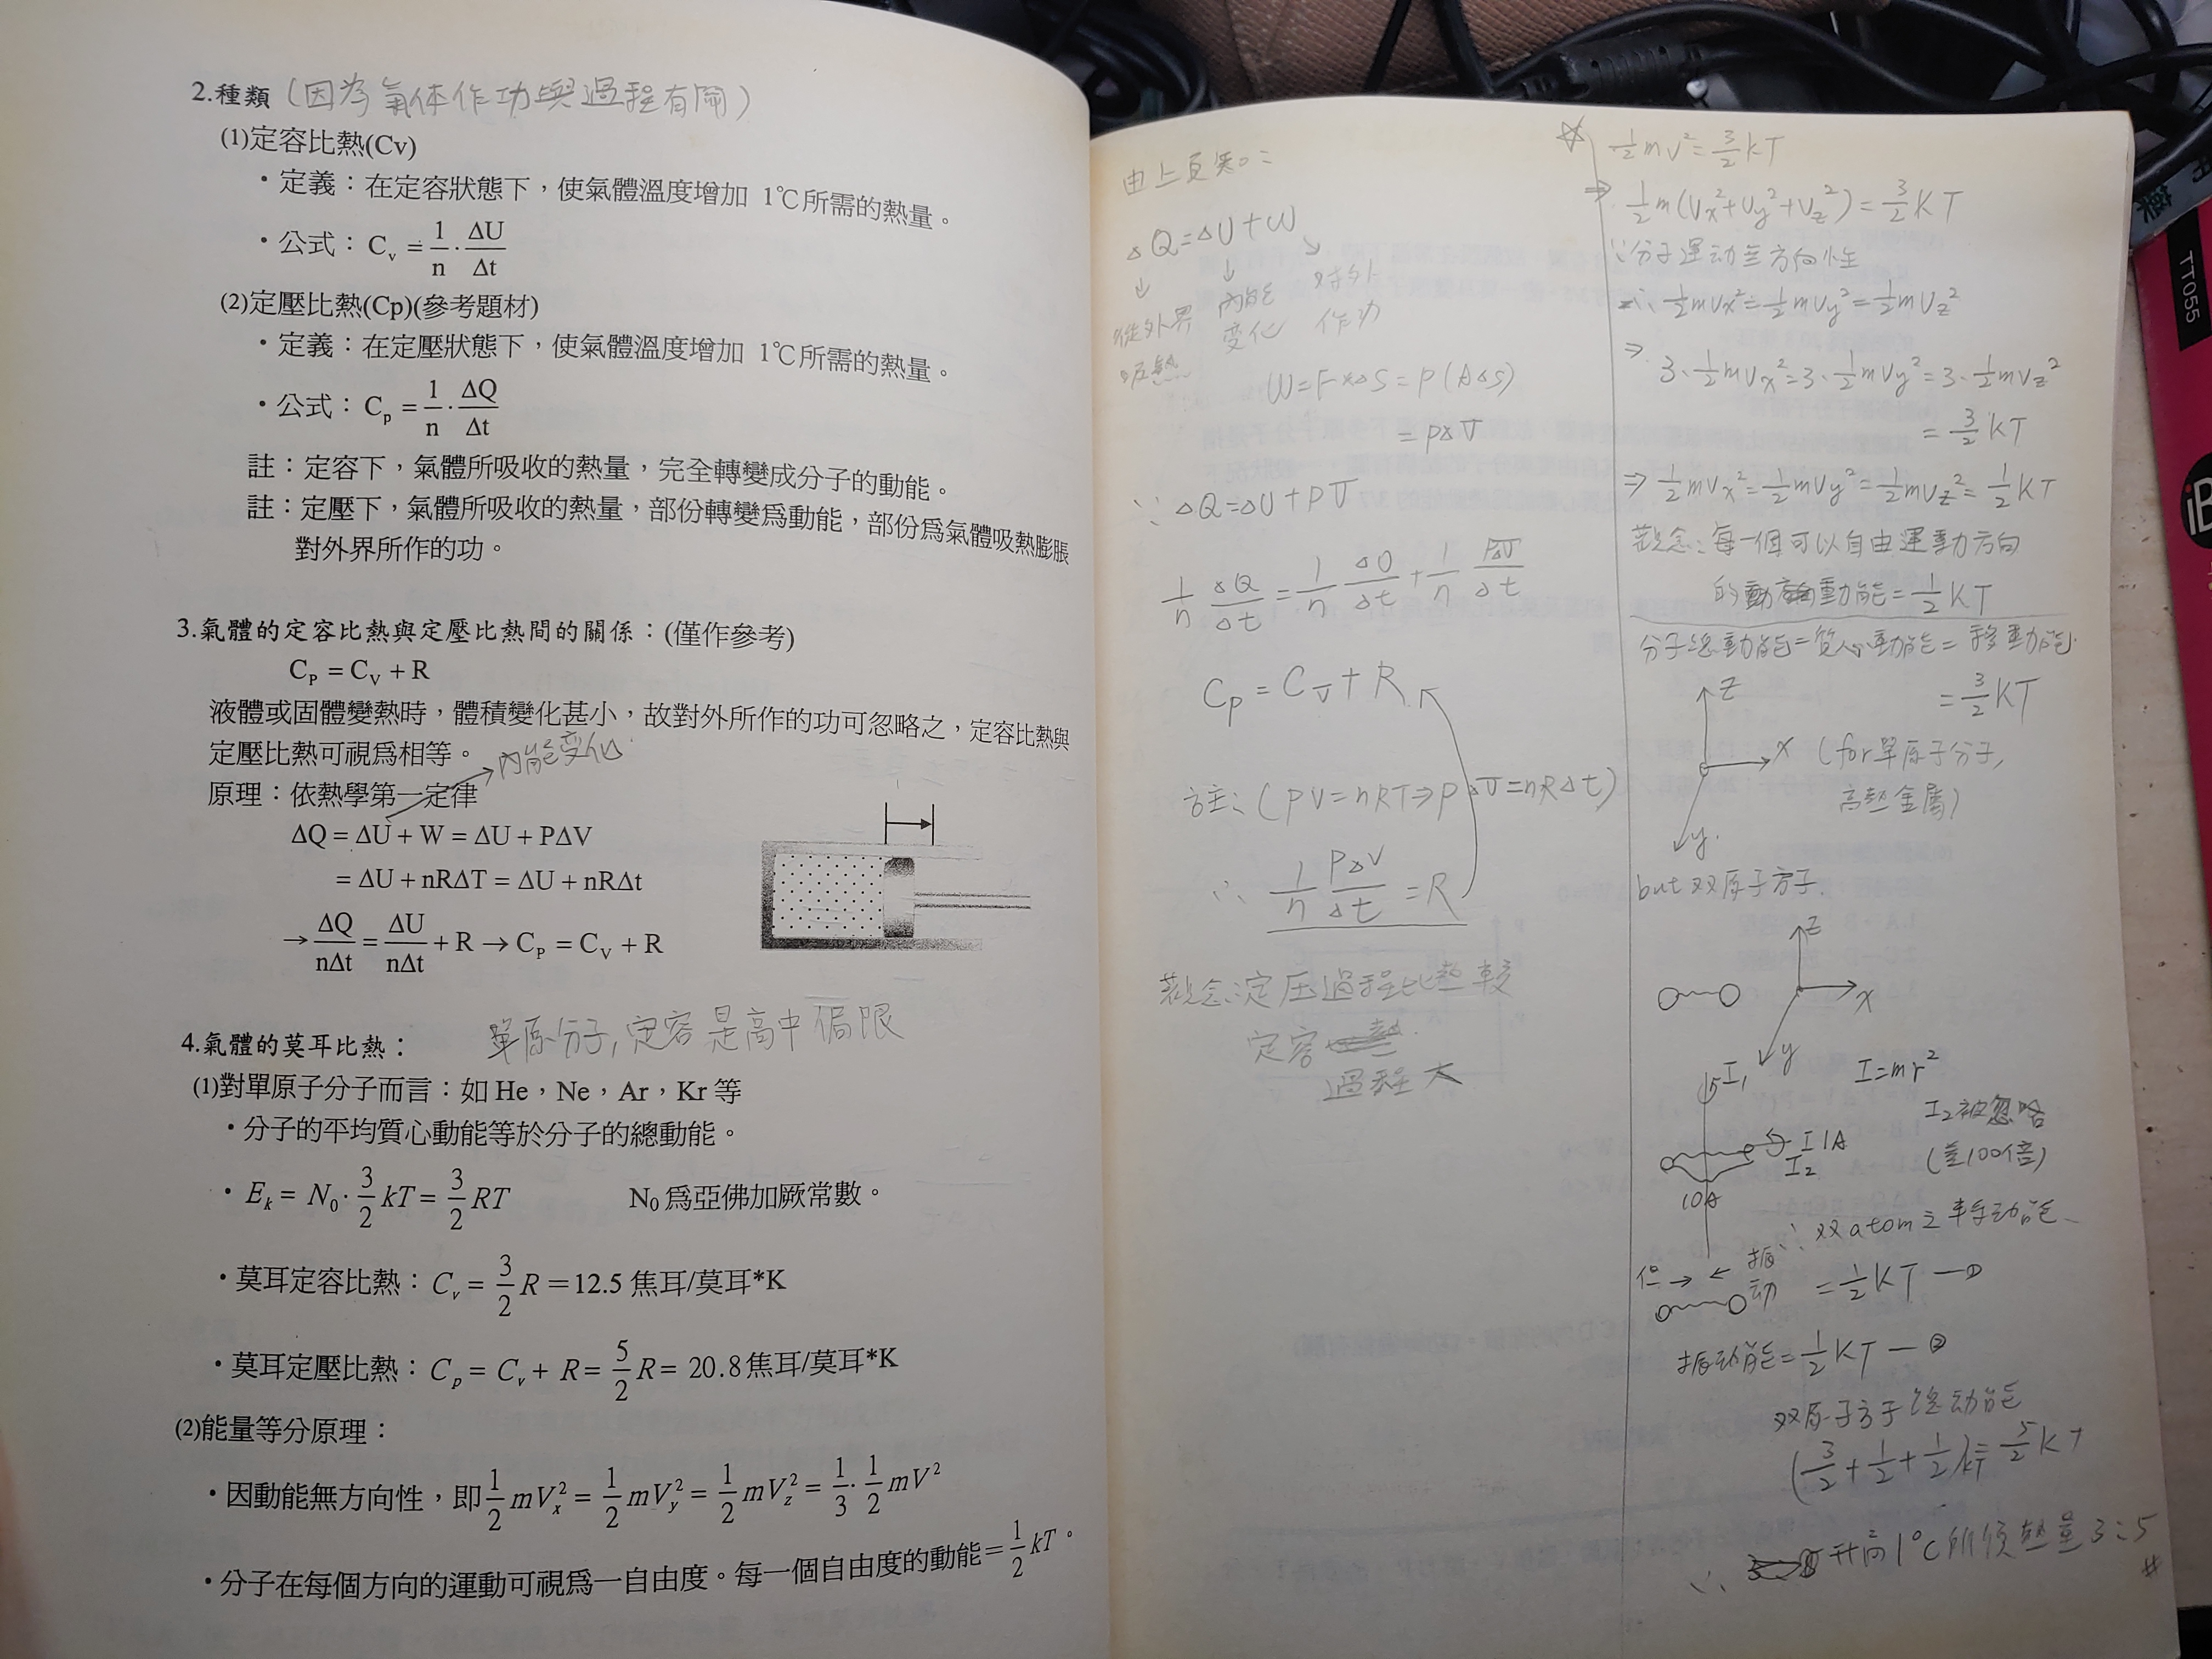 2.種類(因為氣体作功與過程有關)
(1)定容比熱(Cv)
・定義：在定容狀態下，使氣體溫度增加 1℃所需的熱量。
・公式：Cᵥ = 1/n · ΔU/Δt
(2)定壓比熱(Cp)(參考題材)
・定義：在定壓狀態下，使氣體溫度增加 1℃所需的熱量。
・公式：Cₚ = 1/n · ΔQ/Δt
註：定容下，氣體所吸收的熱量，完全轉變成分子的動能。
註：定壓下，氣體所吸收的熱量，部份轉變爲動能，部份爲氣體吸熱膨脹
對外界所作的功。
3.氣體的定容比熱與定壓比熱間的關係：(僅作參考)
C_P = C_V + R
液體或固體變熱時，體積變化甚小，故對外所作的功可忽略之，定容比熱與
定壓比熱可視爲相等。
內能变化
原理：依熱學第一定律
ΔQ = ΔU + W = ΔU + PΔV
= ΔU + nRΔT = ΔU + nRΔt
→ ΔQ/nΔt = ΔU/nΔt + R → C_P = C_V + R
4.氣體的莫耳比熱： 單原分子,定容是高中侷限
(1)對單原子分子而言：如 He，Ne，Ar，Kr 等
・分子的平均質心動能等於分子的總動能。
・E_k = N₀· 3/2 kT = 3/2 RT N₀ 爲亞佛加厥常數。
・莫耳定容比熱：Cᵥ = 3/2 R = 12.5 焦耳/莫耳*K
・莫耳定壓比熱：Cₚ = Cᵥ + R = 5/2 R = 20.8 焦耳/莫耳*K
(2)能量等分原理：
・因動能無方向性，即 1/2 mVₓ² = 1/2 mV_y² = 1/2 mV_z² = 1/3 · 1/2 mV²
・分子在每個方向的運動可視爲一自由度。每一個自由度的動能= 1/2 kT。
由上頁知:
△Q=△U+W
↓ ↓ ↘
從外界 內能 對外
吸熱 变化 作功
W=F×△S=P(A△S)
=P△V
∵ △Q=△U+PV
1/n △Q/△t = 1/n △U/△t + 1/n P△V/△t
Cp = Cv + R
註:(PV=nRT⇒P△V=nR△t)
∴ 1/n P△V/△t = R
觀念:定压過程比熱較
定容
過程大
☆ 1/2 mv² = 3/2 kT
⇒ 1/2 m(Vx²+Vy²+Vz²) = 3/2 KT
∵分子運动無方向性
∴ 1/2 mVx² = 1/2 mVy² = 1/2 mVz²
⇒ 3·1/2 mVx² = 3·1/2 mVy² = 3·1/2 mVz²
= 3/2 KT
⇒ 1/2 mVx² = 1/2 mVy² = 1/2 mVz² = 1/2 KT
觀念:每一個可以自由運動方向
的動能= 1/2 KT
分子總動能=質心動能=移動能
= 3/2 KT
Z
X
y
(for單原子分子,
高熱金屬)
but 双原子分子.
Z
X
y
I₁
I=mr²
I₂被忽略
(差100倍)
1A
I₂
10A
∴双atom之轉动能
= 1/2 KT —①
→ ← 振
动
振动能= 1/2 KT —②
双原子分子總动能
(3/2 + 1/2 + 1/2)kT = 5/2 KT
∴ 升高1°C所須熱量3:5
#
TT055
iB